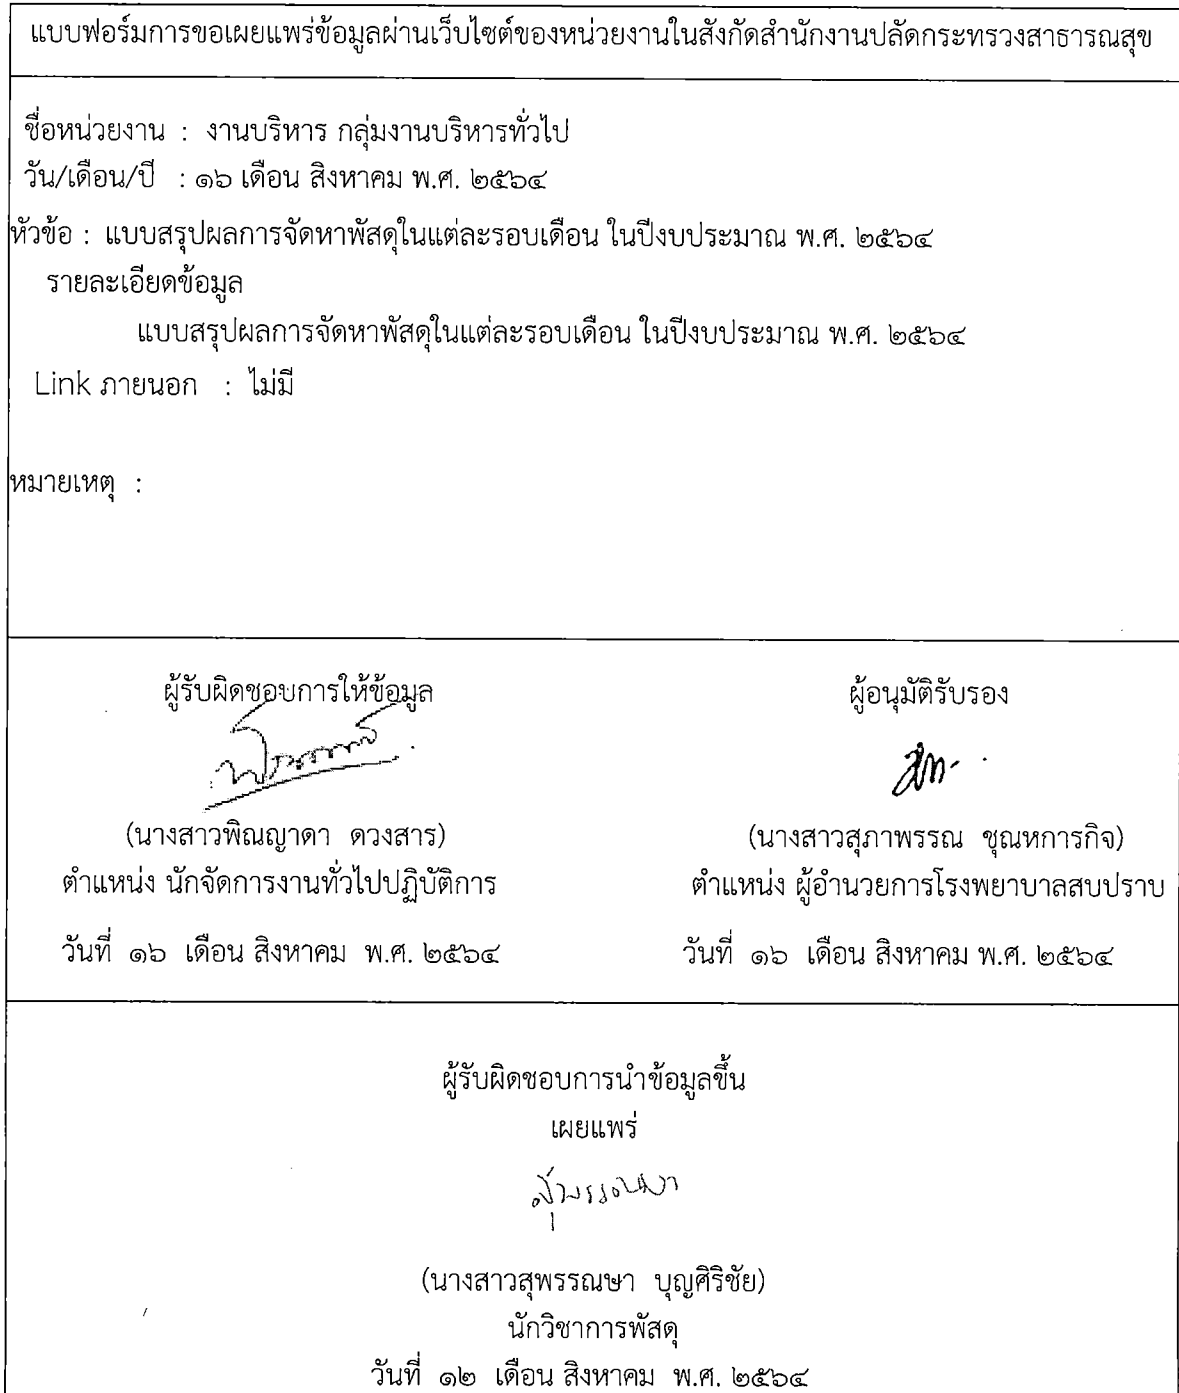 แบบฟอร์มการขอเผยแพร่ข้อมูลผ่านเว็บไซต์ของหน่วยงานในสังกัดสำนักงานปลัดกระทรวงสาธารณสุข
ชื่อหน่วยงาน : งานบริหาร กลุ่มงานบริหารทั่วไป
วัน/เดือน/ปี : ๑๖ เดือน สิงหาคม พ.ศ. ๒๕๖๔
หัวข้อ : แบบสรุปผลการจัดหาพัสดุในแต่ละรอบเดือน ในปีงบประมาณ พ.ศ. ๒๕๖๔
รายละเอียดข้อมูล
แบบสรุปผลการจัดหาพัสดุในแต่ละรอบเดือน ในปีงบประมาณ พ.ศ. ๒๕๖๔
Link ภายนอก : ไม่มี
หมายเหตุ :
ผู้รับผิดชอบการให้ข้อมูล
(นางสาวพิณญาดา ดวงสาร)
ตำแหน่ง นักจัดการงานทั่วไปปฏิบัติการ
วันที่ ๑๖ เดือน สิงหาคม พ.ศ. ๒๕๖๔
ผู้อนุมัติรับรอง
(นางสาวสุภาพรรณ ชุณหการกิจ)
ตำแหน่ง ผู้อำนวยการโรงพยาบาลสบปราบ
วันที่ ๑๖ เดือน สิงหาคม พ.ศ. ๒๕๖๔
ผู้รับผิดชอบการนำข้อมูลขึ้น
เผยแพร่
สุพรรณษา
(นางสาวสุพรรณษา บุญศิริชัย)
นักวิชาการพัสดุ
วันที่ ๑๒ เดือน สิงหาคม พ.ศ. ๒๕๖๔